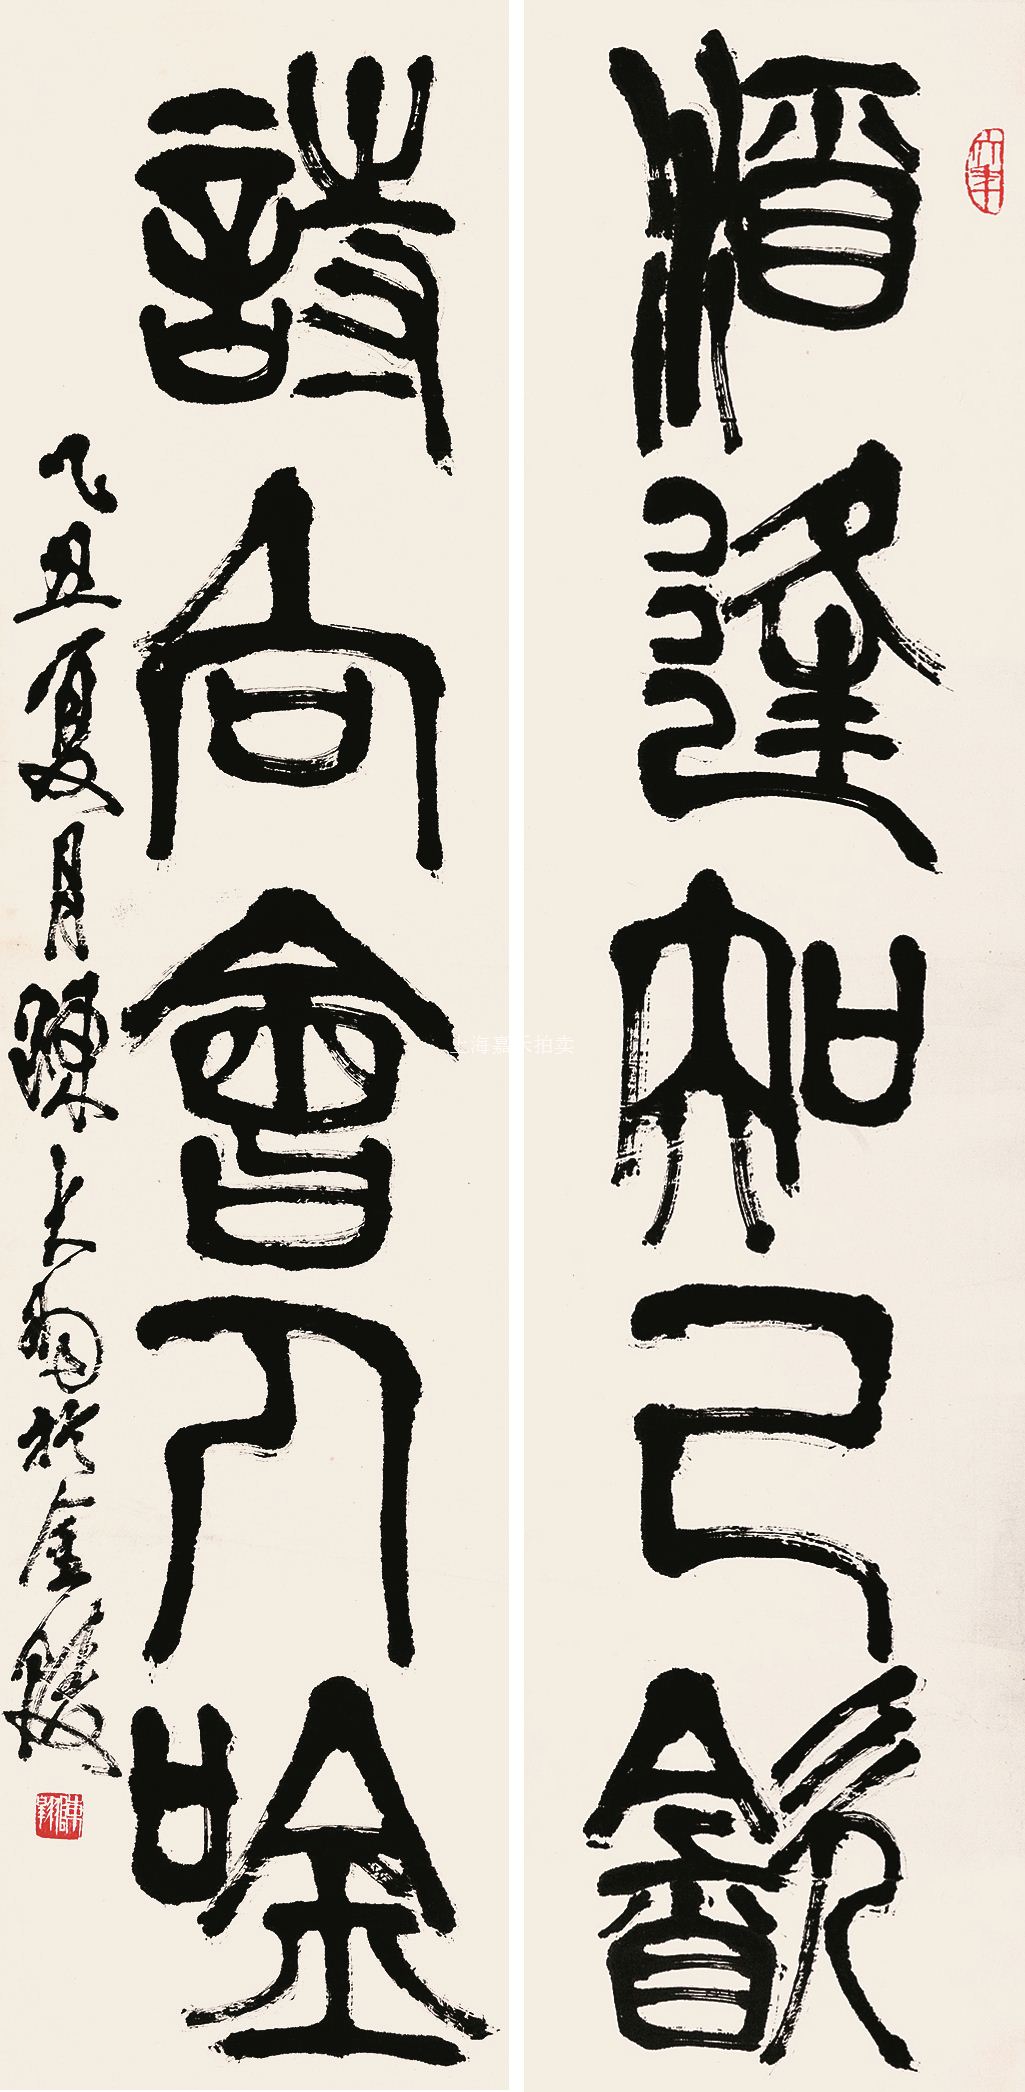 酒逢知己歓
詩向會人唫
乙丑夏月陳大羽於金陵
大年
陳翱
上海嘉禾拍卖